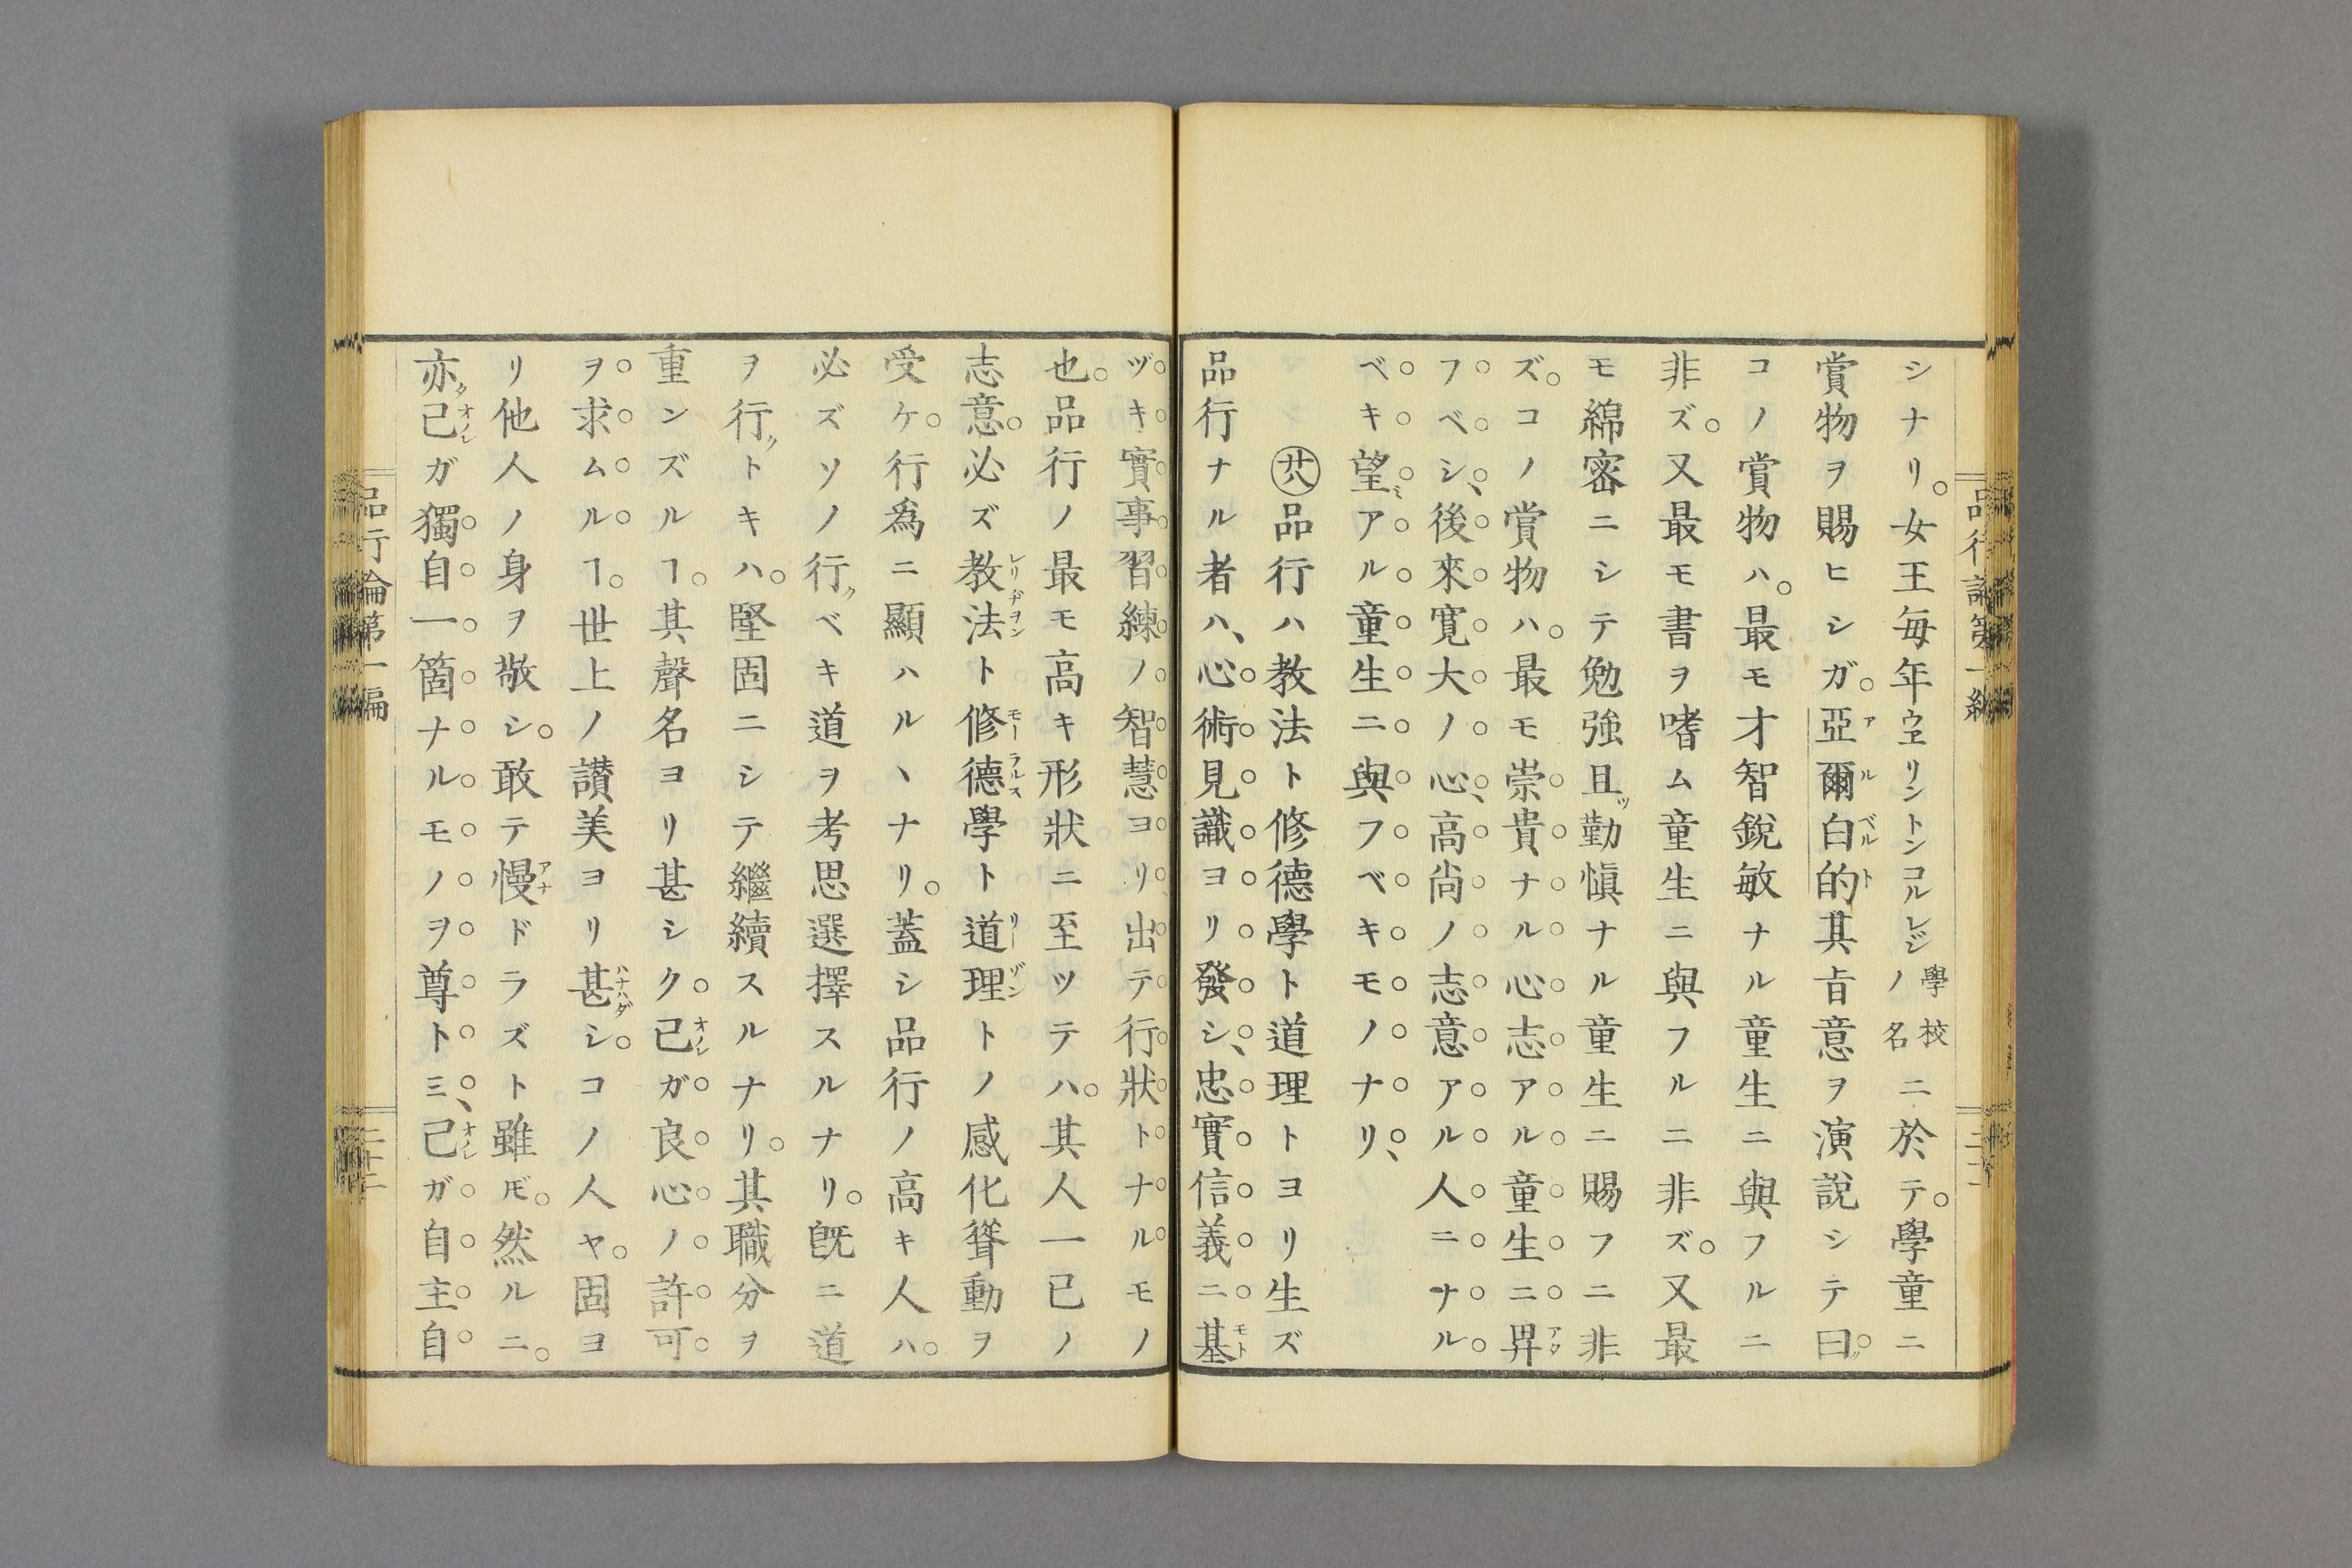 シナリ。女王毎年ウヱリントンコルレジ學校ノ名ニ於テ。學童ニ
賞物ヲ賜ヒシガ。亞爾白的アルベルト其旨意ヲ演說シテ曰ク。
コノ賞物ハ。最モ才智銳敏ナル童生ニ與フルニ
非ズ。又最モ書ヲ嗜ム童生ニ與フルニ非ズ。又最
モ綿密ニシテ勉強且ツ勤愼ナル童生ニ賜フニ非
ズ。コノ賞物ハ。最モ崇貴ナル心志アル童生ニ畀アタ
フベシ、後來寛大ノ心、高尚ノ志意アル人ニナル
ベキ望ミアル童生ニ與フベキモノナリ、
㊳品行ハ教法ト修德學ト道理トヨリ生ズ
品行ナル者ハ、心術見識ヨリ發シ、忠實信義ニ基モト
ヅキ實事習練ノ智慧ヨリ出テ行狀トナルモノ
也。品行ノ最モ高キ形狀ニ至ツテハ。其人一已ノ
志意。必ズ教法レリヂヲントト修德モーラルス學ト道理リーゾントノ感化聳動ヲ
受ケ。行爲ニ顯ハルヽナリ。蓋シ品行ノ高キ人ハ。
必ズソノ行クベキ道ヲ考思選擇スルナリ。既ニ道
ヲ行クトキハ。堅固ニシテ繼續スルナリ。其職分ヲ
重ンズルヿ。其聲名ヨリ甚シク。己オノレガ良心ノ許可
ヲ求ムルヿ。世上ノ讃美ヨリ甚ハナハダシ。コノ人ヤ。固ヨ
リ他人ノ身ヲ敬シ。敢テ慢アナドラズト雖𪜈。然ルニ。
亦タ己オノレガ獨自一箇ナルモノヲ尊トミ、己オノレガ自主自
品行論第一編
二十二